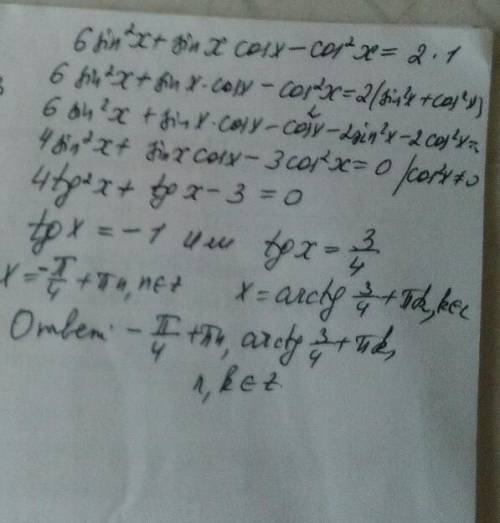 6 sin²x + sin x cosx − cos²x = 2·1
6 sin²x + sin x·cosx − cos²x = 2(sin²x + cos²x)
6 sin²x + sin x·cosx − cos²x − 2sin²x − 2cos²x =
4sin²x + sin x cosx − 3cos²x = 0 /cos²x ≠ 0
4tg²x + tg x − 3 = 0
tg x = −1 или tg x = 3/4
x = −π/4 + πn, n∈z x = arctg 3/4 + πk, k∈z
Ответ: − π/4 + πn, arctg 3/4 + πk,
n, k ∈ z.